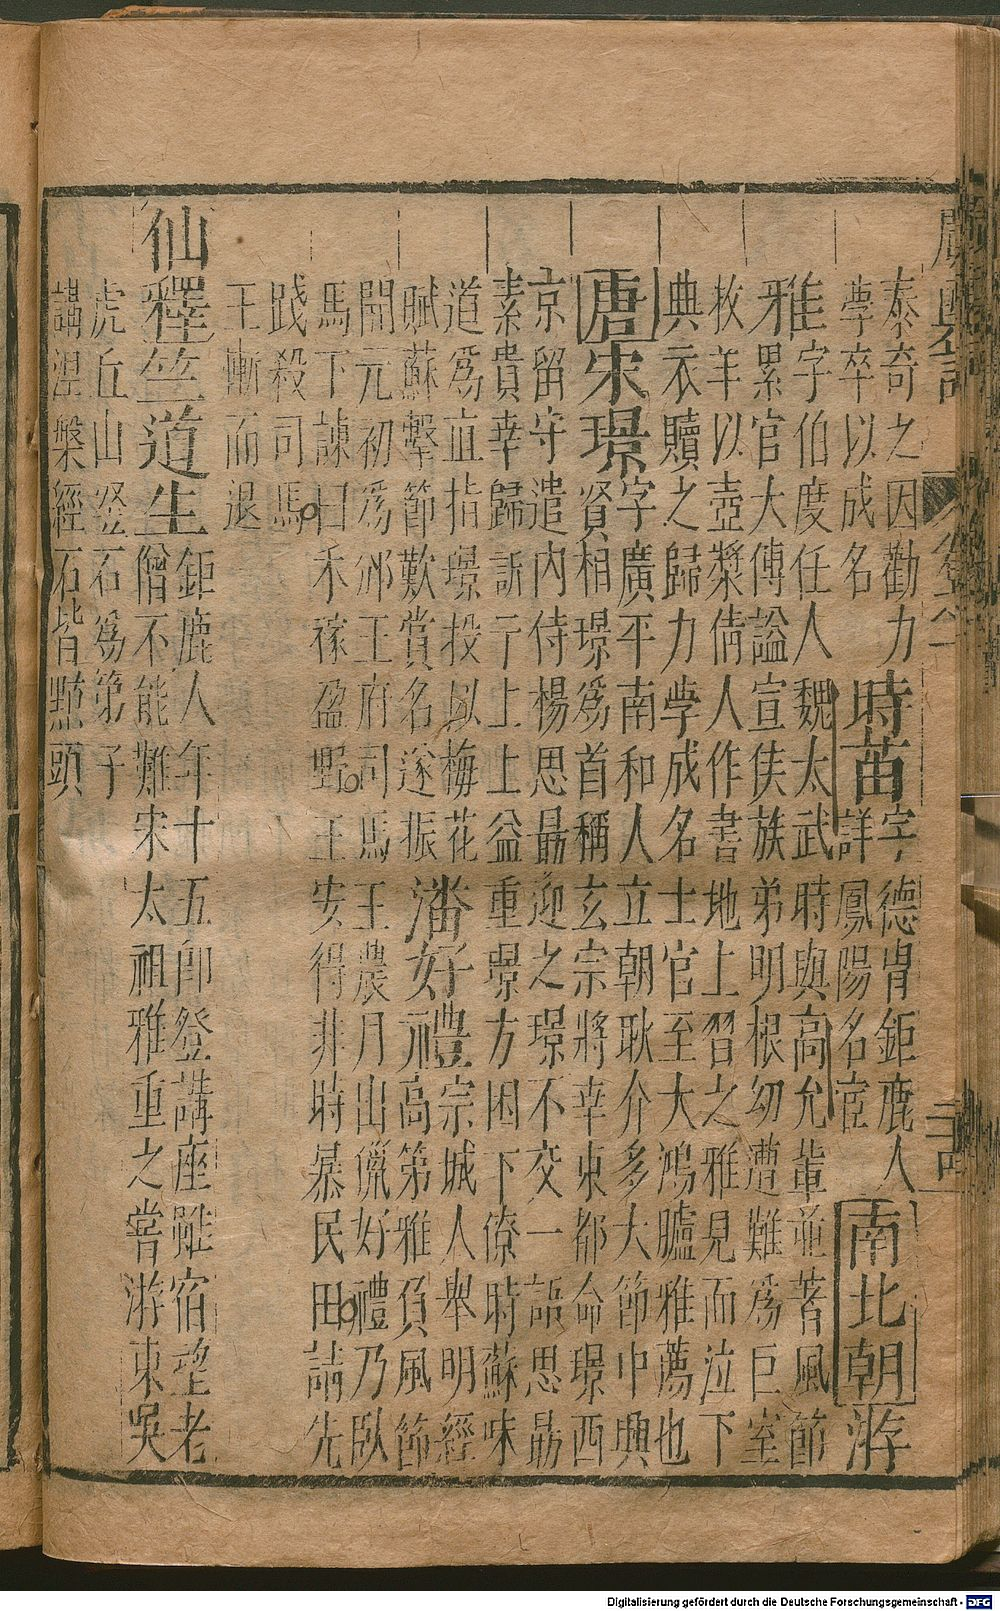 泰奇之因勸力
學卒以成名
時苗
字德胄鉅鹿人
詳鳳陽名宦
南北朝
游
雅字伯度任人魏太武時與高允軰並著風節
累官大傳謚宣侯族弟明根幼遭難爲巨室
牧羊以壺漿倩人作書地上習之雅見而泣下
典衣贖之歸力学成名士官至大鴻臚雅薦也
唐
宋璟
字廣平南和人立朝耿介多大節中興
賢相璟爲首稱玄宗將幸東都命璟西
京留守遣内侍楊思勗迎之璟不交一語思勗
素貴幸歸訴于上上益重璟方困下僚時蘇味
道爲直指璟投以梅花
賦蘇擊節歎賞名遂振
潘好禮
宗城人舉明經
高第雅負風節
開元初爲邠王府司馬王農月出獵好禮乃臥
馬下諫曰禾稼盈野王安得非時暴民田請先
踐殺司馬
王慚而退
仙釋
竺道生
鉅鹿人年十五即登講座雖宿望老
僧不能難宋太祖雅重之嘗游東吳
虎丘山竪石爲第子
講涅槃經石皆㸃頭
Digitalisierung gefördert durch die Deutsche Forschungsgemeinschaft - DFG